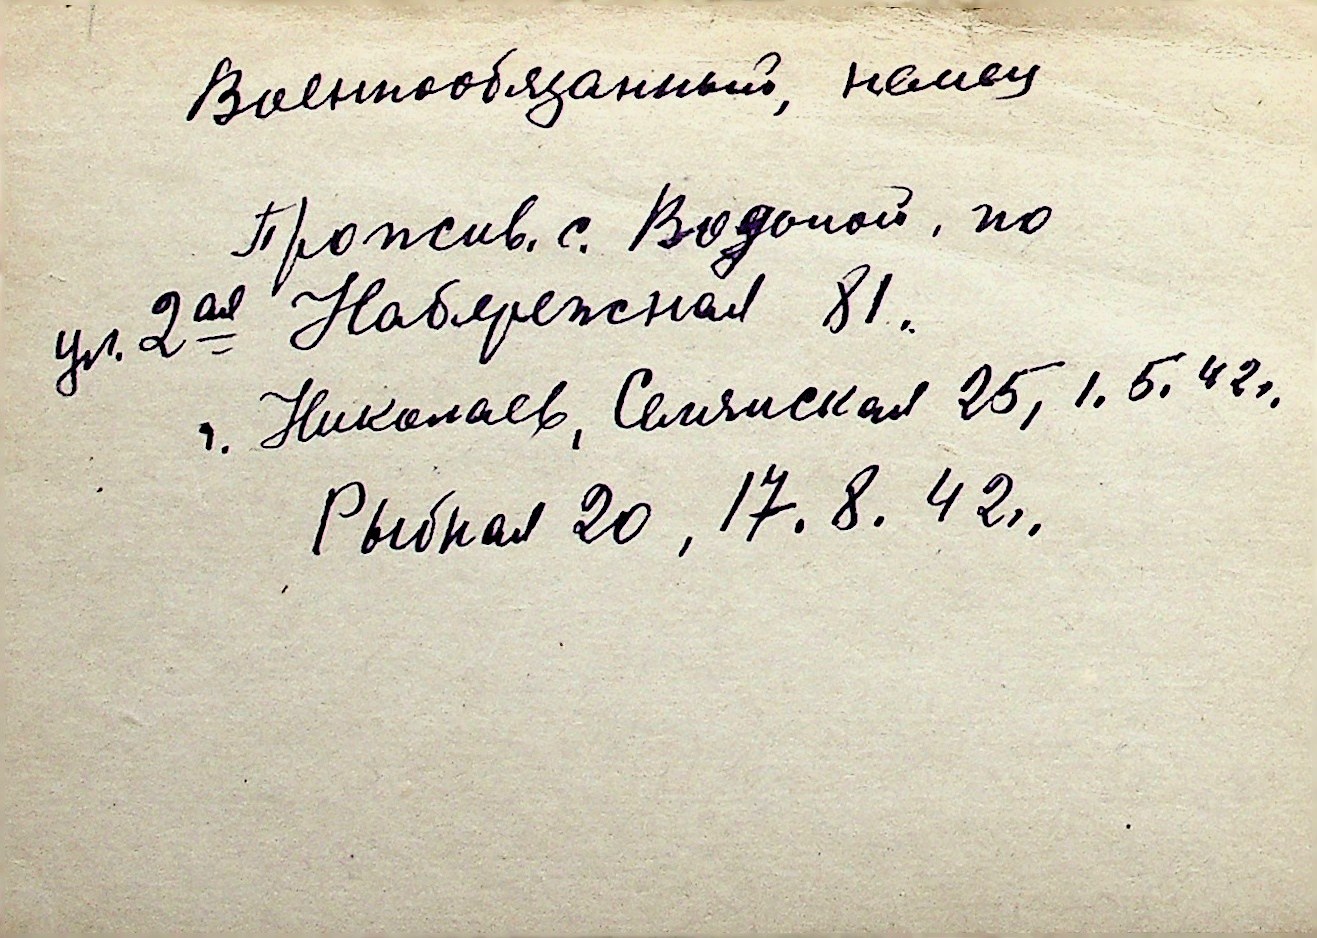 Военнообязанный, немец
Прожив. с. Водопой, по
ул. 2ая Набережная 81.
г. Николаев, Селянская 25, 1. 5. 42г.
Рыбная 20, 17. 8. 42г.